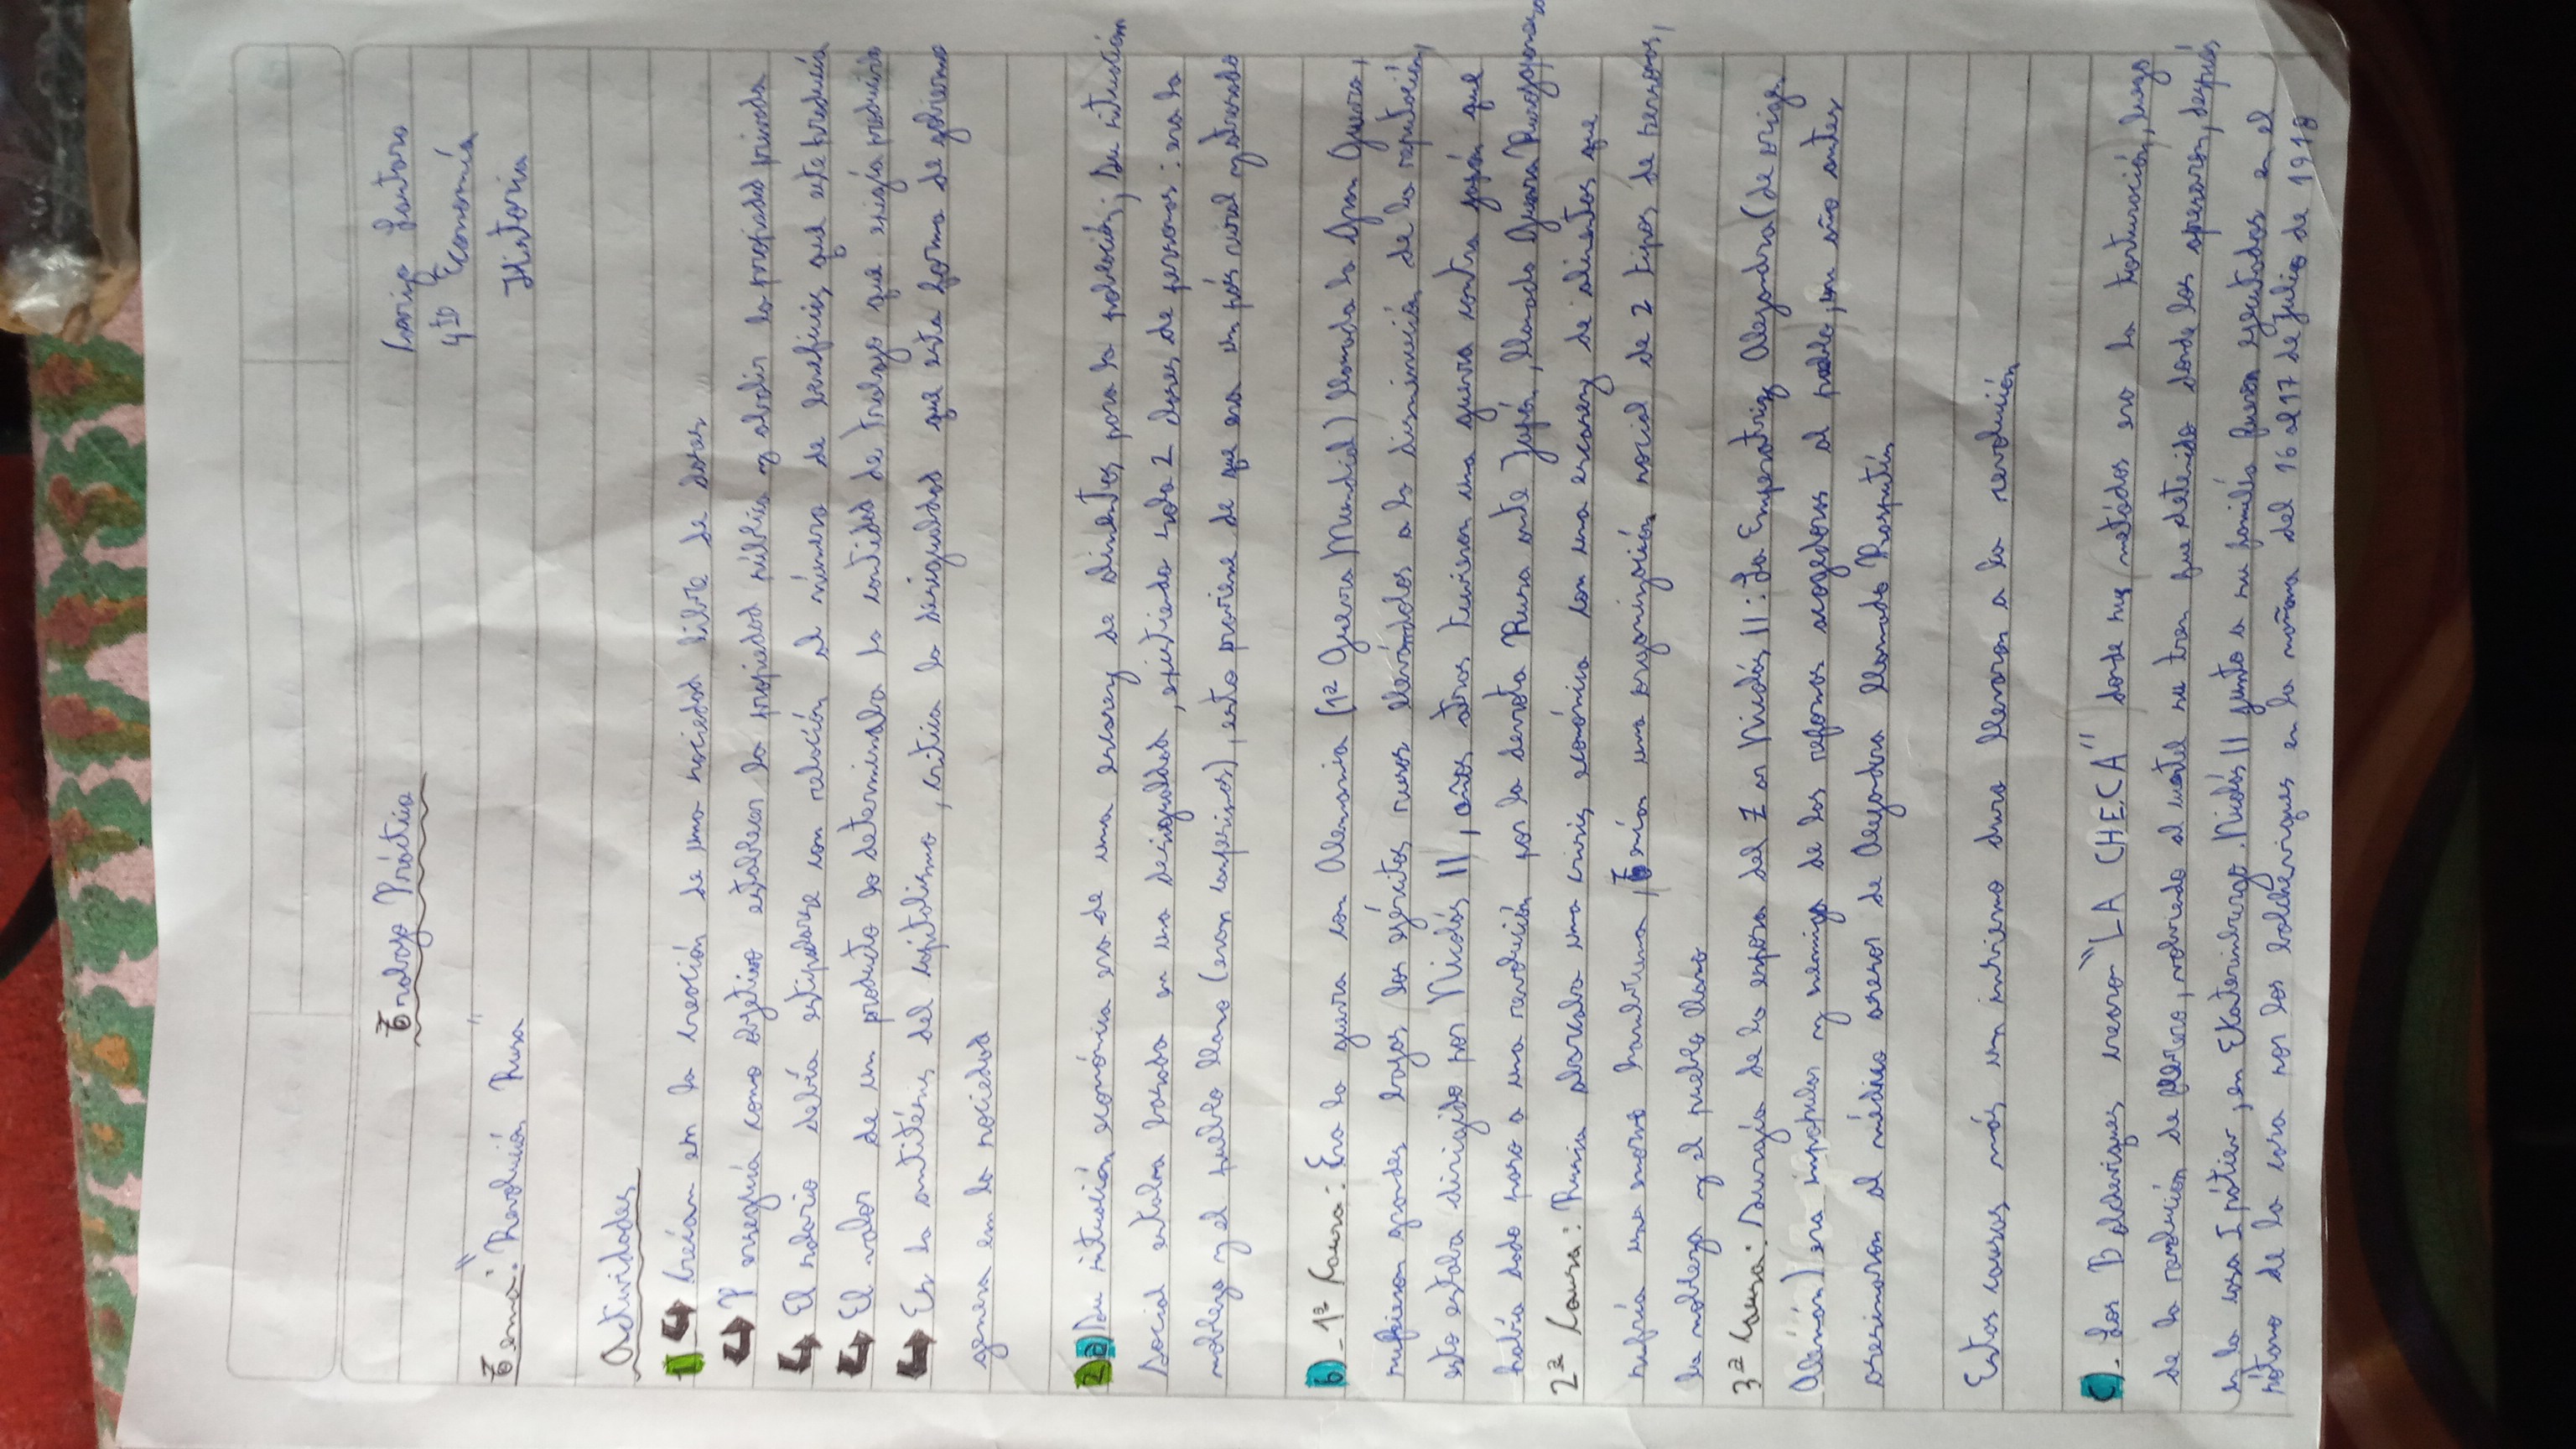 Trabajo Práctico
Lautaro
4to Economía
Historia
Tema: "Revolución Rusa"
Actividades
1 ↳ Creían en la creación de una sociedad libre de clases
↳ Perseguía como objetivo establecer la propiedad pública y abolir la propiedad privada
↳ El salario debía estipularse con relación al número de beneficios que este producía
↳ El valor de un producto lo determinaba la cantidad de trabajo que exigía producirlo
↳ Es la antítesis del capitalismo, critica la desigualdad que esta forma de gobierno
genera en la sociedad
2)a) Su situación económica era de una escasez de alimentos para la población; Su situación
Social estaba basada en una desigualdad, existiendo solo 2 clases de personas: era la
nobleza y el pueblo llano (eran campesinos), esto proviene de que era un país rural y atrasado
b)- 1ª Causa: Era la guerra con Alemania (1ª Guerra Mundial) llamada la Gran Guerra,
sufrieron grandes bajas los ejércitos rusos llevándolos a la disminución de la reputación,
esto estaba dirigido por Nicolás II, años atras tuvieron una guerra contra Japón que
había dado paso a una revolución por la derrota Rusa ante Japón, llamada Guerra Rusojaponesa
2ª Causa: Rusia pasaba una crisis económica con una escasez de alimentos que
sufría una masa hambruna, tenía una organización social de 2 tipos de personas,
la nobleza y el pueblo llano
3ª Causa: Surgía de la esposa del Zar Nicolás II: La Emperatriz Alejandra (de origen
Alemán) era impopular y enemiga de las reformas acogedoras al pueblo, un año antes
asesinaron al médico asesor de Alejandra llamado Rasputín
Estas causas más un invierno duro llevaron a la revolución
c)- Los Bolcheviques crearon "LA CHECA" donde sus metódos era la torturación, luego
de la revolución de febrero, volviendo al cuartel su tren fue detenido donde los apresaron, después
en la casa Ipátiev, en Ekaterimburgo. Nicolás II junto a su familia fueron ejecutados en el
sótano de la casa por los bolcheviques en la mañana del 16 al 17 de Julio de 1918